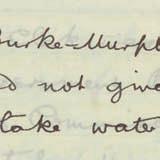 Burke-Murph
d not give
take water